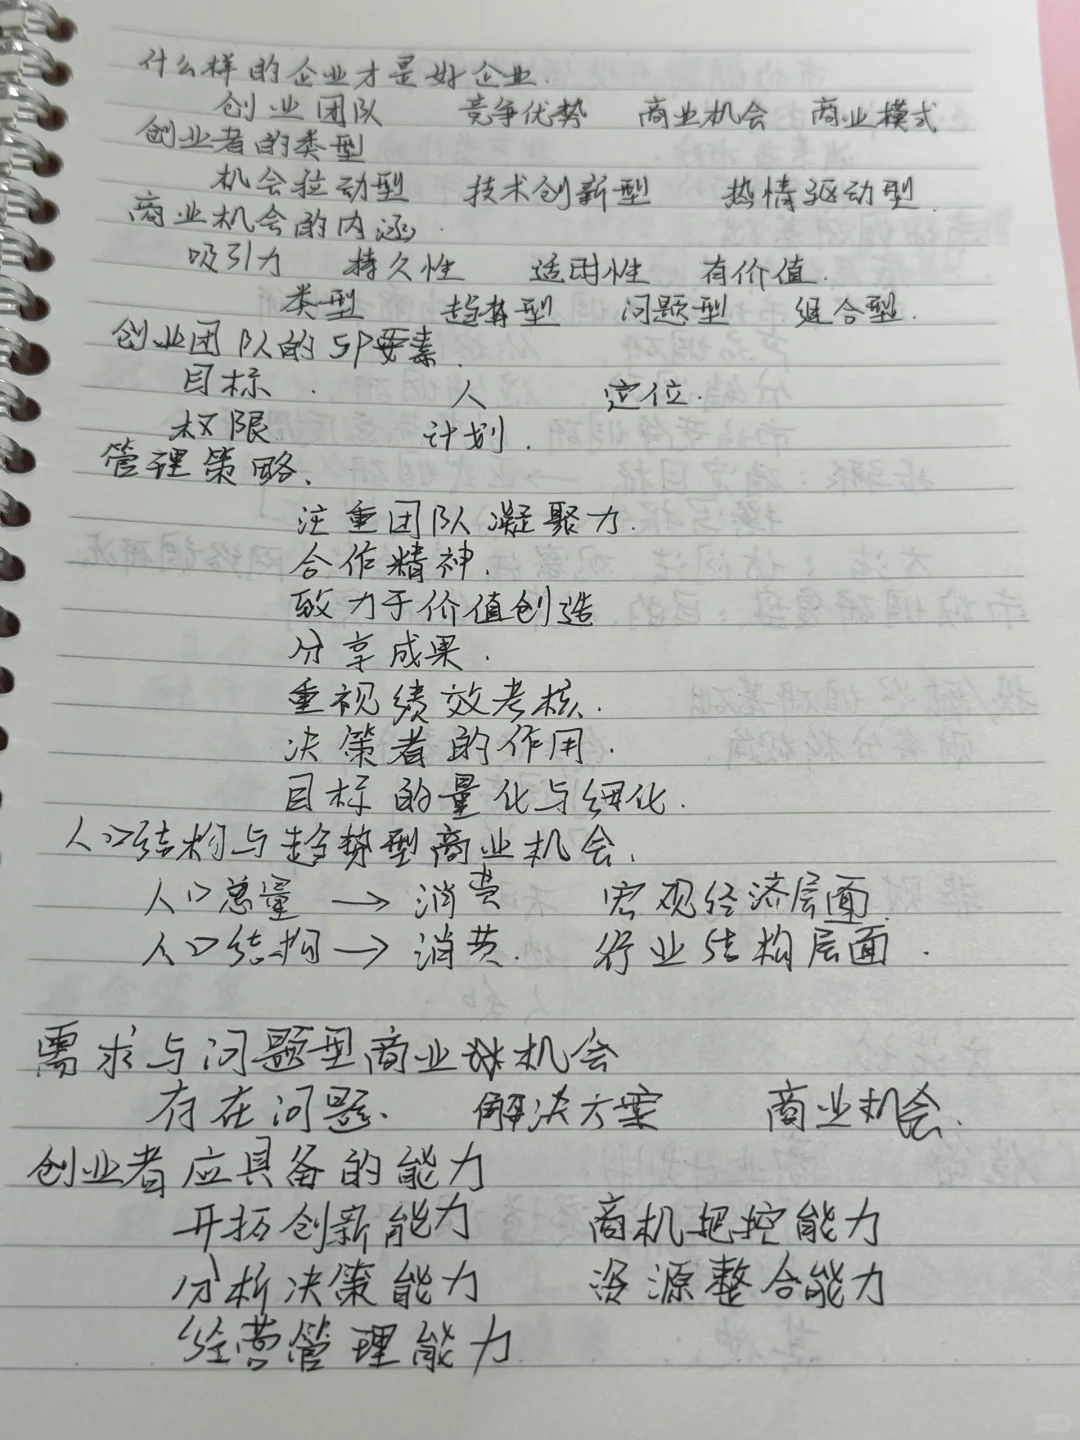 什么样的企业才是好企业.
创业团队 竞争优势 商业机会 商业模式
创业者的类型
机会拉动型 技术创新型 热情驱动型.
商业机会的内涵.
吸引力 持久性 适时性 有价值.
类型 趋势型 问题型 组合型.
创业团队的5P要素.
目标. 人 定位.
权限 计划.
管理策略.
注重团队凝聚力.
合作精神.
致力于价值创造
分享成果.
重视绩效考核.
决策者的作用.
目标的量化与细化.
人口结构与趋势型商业机会.
人口总量 → 消费 宏观经济层面.
人口结构 → 消费. 行业结构层面.
需求与问题型商业机会
存在问题. 解决方案 商业机会.
创业者应具备的能力
开拓创新能力 商机把控能力
分析决策能力 资源整合能力
经营管理能力